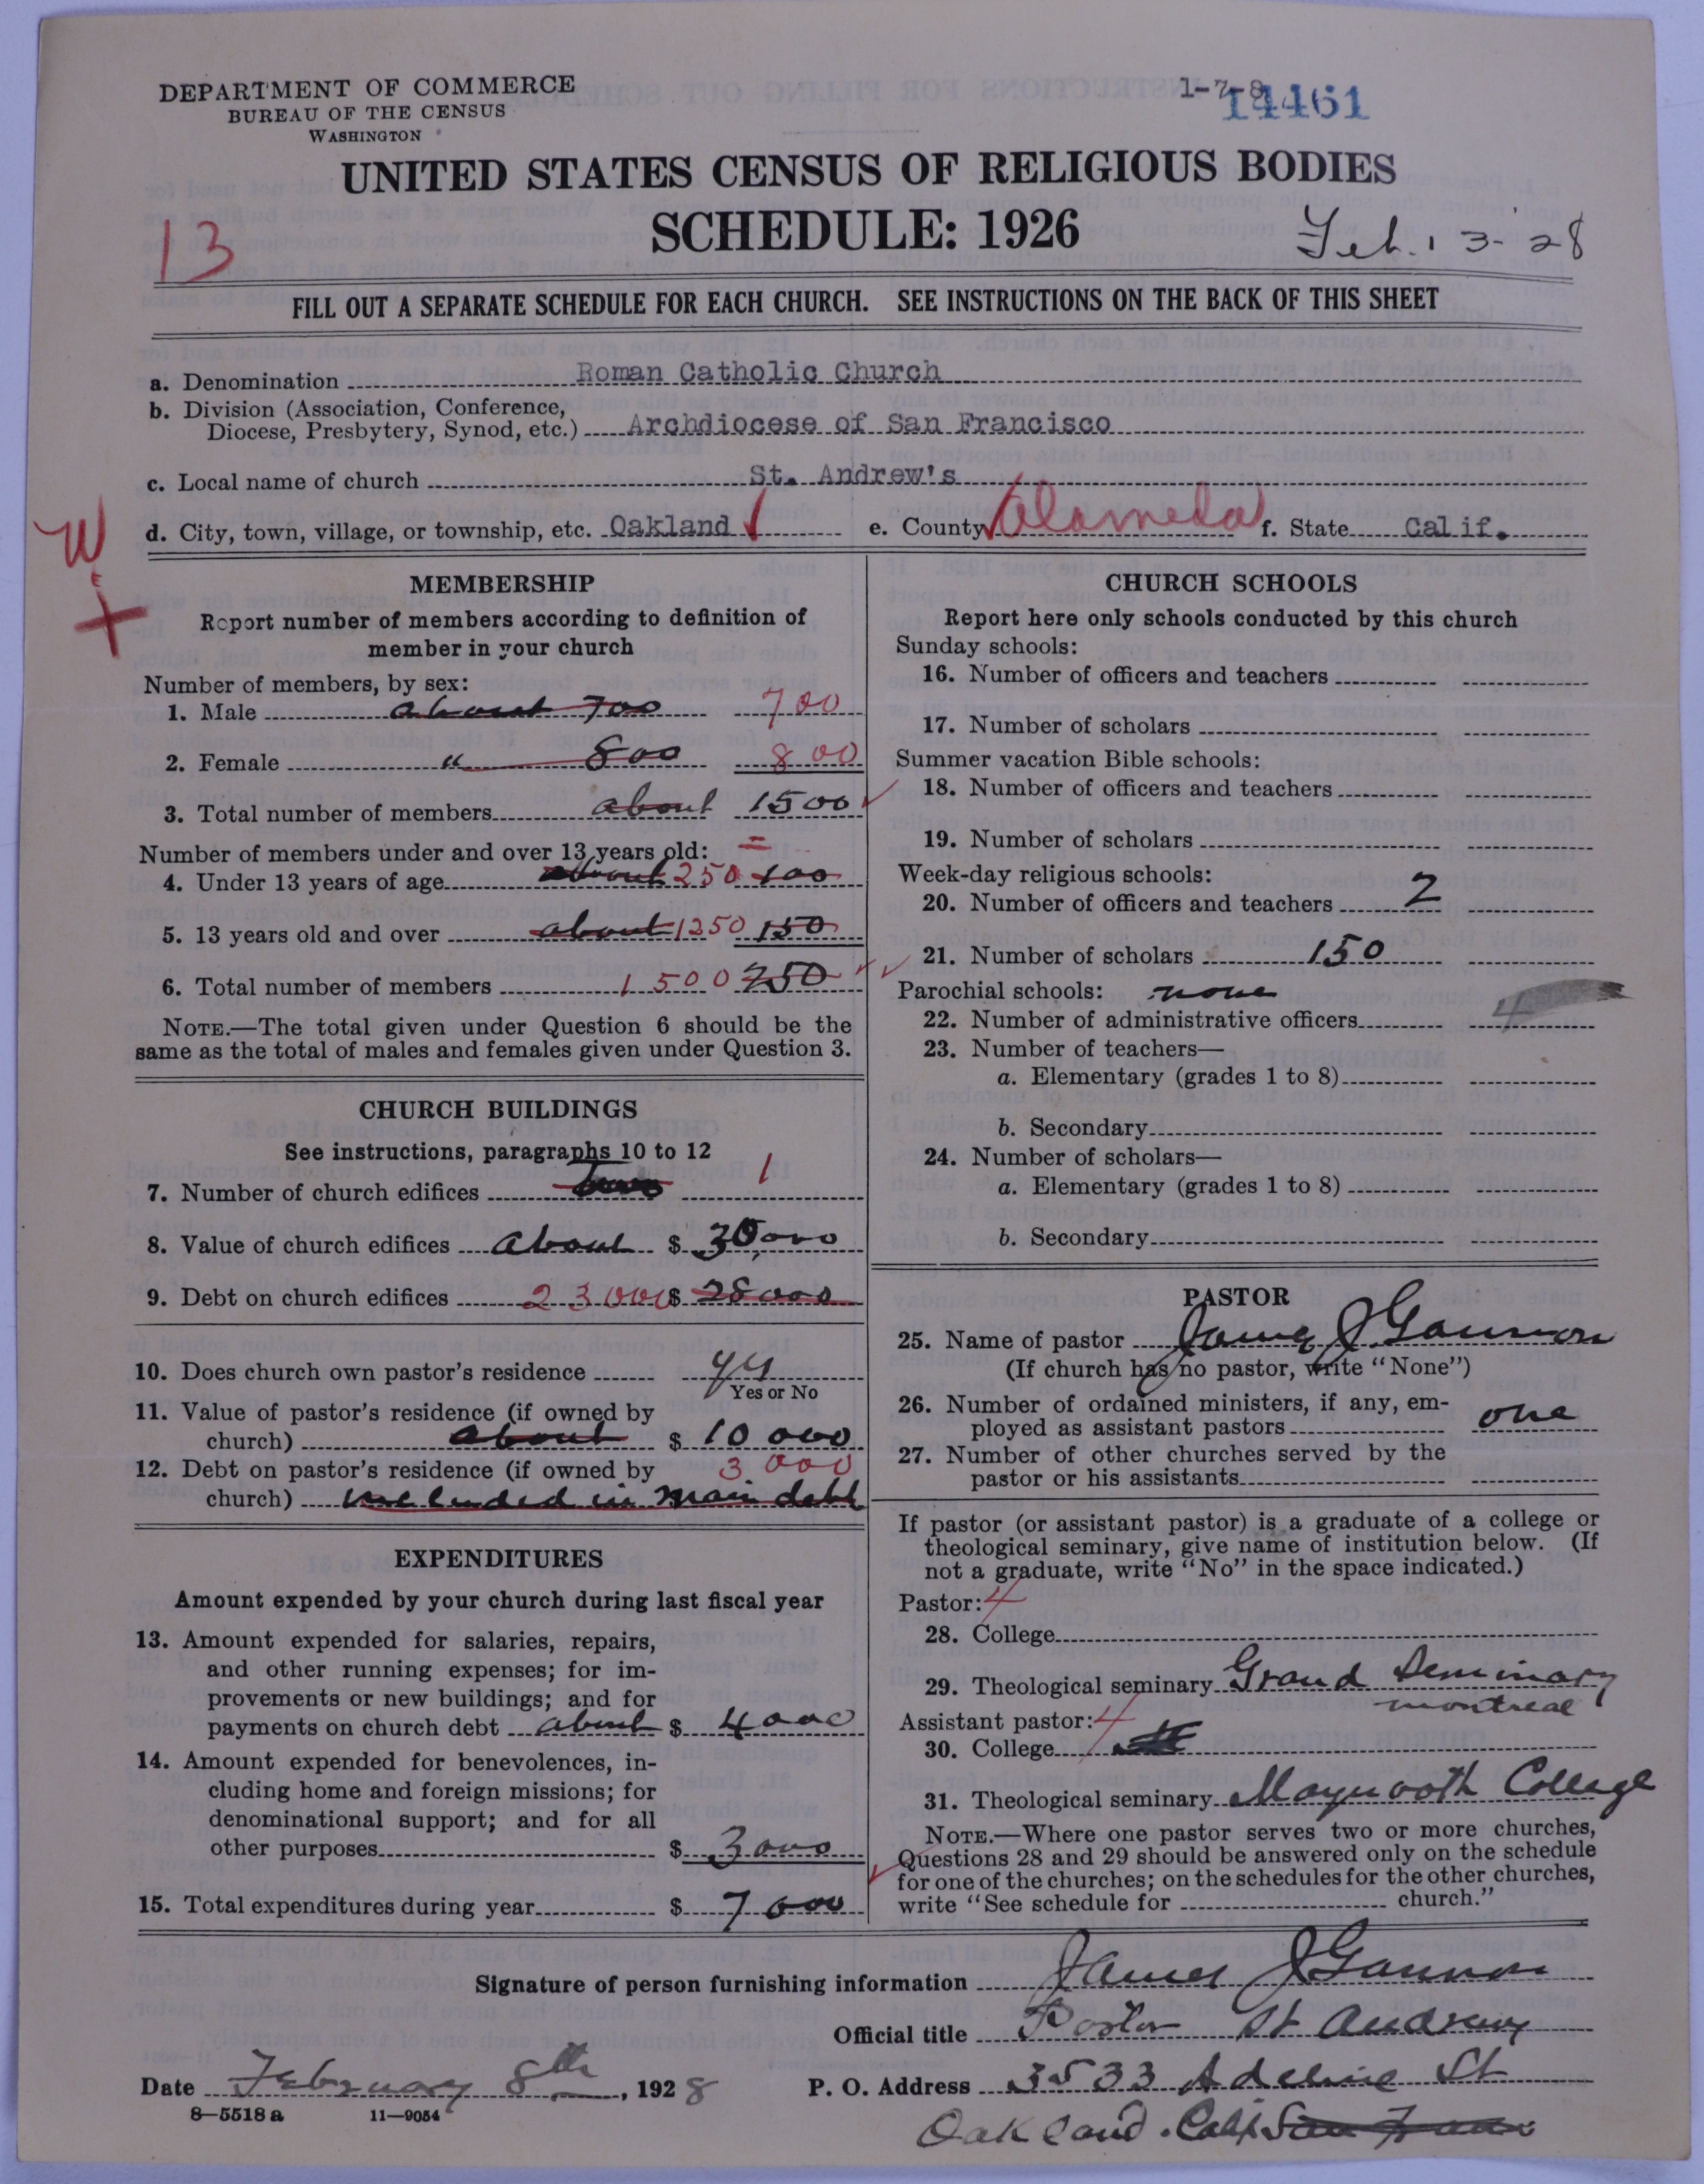 DEPARTMENT OF COMMERCE
BUREAU OF THE CENSUS
WASHINGTON
1-7-8
14461
UNITED STATES CENSUS OF RELIGIOUS BODIES
SCHEDULE: 1926
13
Feb. 13-28
FILL OUT A SEPARATE SCHEDULE FOR EACH CHURCH. SEE INSTRUCTIONS ON THE BACK OF THIS SHEET
a. Denomination Roman Catholic Church
b. Division (Association, Conference,
Diocese, Presbytery, Synod, etc.) Archdiocese of San Francisco
c. Local name of church St. Andrew's
d. City, town, village, or township, etc. Oakland e. County Alameda f. State Calif.
W
MEMBERSHIP
Report number of members according to definition of
member in your church
Number of members, by sex:
1. Male about 700 700
2. Female " 800 800
3. Total number of members about 1500
Number of members under and over 13 years old:
4. Under 13 years of age about 250 100
5. 13 years old and over about 1250 150
6. Total number of members 1500 250
NOTE.—The total given under Question 6 should be the
same as the total of males and females given under Question 3.
CHURCH BUILDINGS
See instructions, paragraphs 10 to 12
7. Number of church edifices 1
8. Value of church edifices about $ 30,000
9. Debt on church edifices 23000 $ 28000
10. Does church own pastor's residence yes
Yes or No
11. Value of pastor's residence (if owned by
church) about $ 10 000
12. Debt on pastor's residence (if owned by 3 000
church) included in main debt
EXPENDITURES
Amount expended by your church during last fiscal year
13. Amount expended for salaries, repairs,
and other running expenses; for im-
provements or new buildings; and for
payments on church debt about $ 4000
14. Amount expended for benevolences, in-
cluding home and foreign missions; for
denominational support; and for all
other purposes $ 3000
15. Total expenditures during year $ 7000
CHURCH SCHOOLS
Report here only schools conducted by this church
Sunday schools:
16. Number of officers and teachers
17. Number of scholars
Summer vacation Bible schools:
18. Number of officers and teachers
19. Number of scholars
Week-day religious schools:
20. Number of officers and teachers 2
21. Number of scholars 150
Parochial schools: none
22. Number of administrative officers 4
23. Number of teachers—
a. Elementary (grades 1 to 8)
b. Secondary
24. Number of scholars—
a. Elementary (grades 1 to 8)
b. Secondary
PASTOR
25. Name of pastor James J Gannon
(If church has no pastor, write "None")
26. Number of ordained ministers, if any, em-
ployed as assistant pastors one
27. Number of other churches served by the
pastor or his assistants
If pastor (or assistant pastor) is a graduate of a college or
theological seminary, give name of institution below. (If
not a graduate, write "No" in the space indicated.)
Pastor: 4
28. College
29. Theological seminary Grand Seminary
montreal
Assistant pastor: 4
30. College
31. Theological seminary Maynooth College
NOTE.—Where one pastor serves two or more churches,
Questions 28 and 29 should be answered only on the schedule
for one of the churches; on the schedules for the other churches,
write "See schedule for church."
Signature of person furnishing information James J Gannon
Official title Pastor St Andrews
Date February 8th, 1928 P. O. Address 3533 Adeline St
8—5518 a 11—9054
Oakland. Calif San Fran